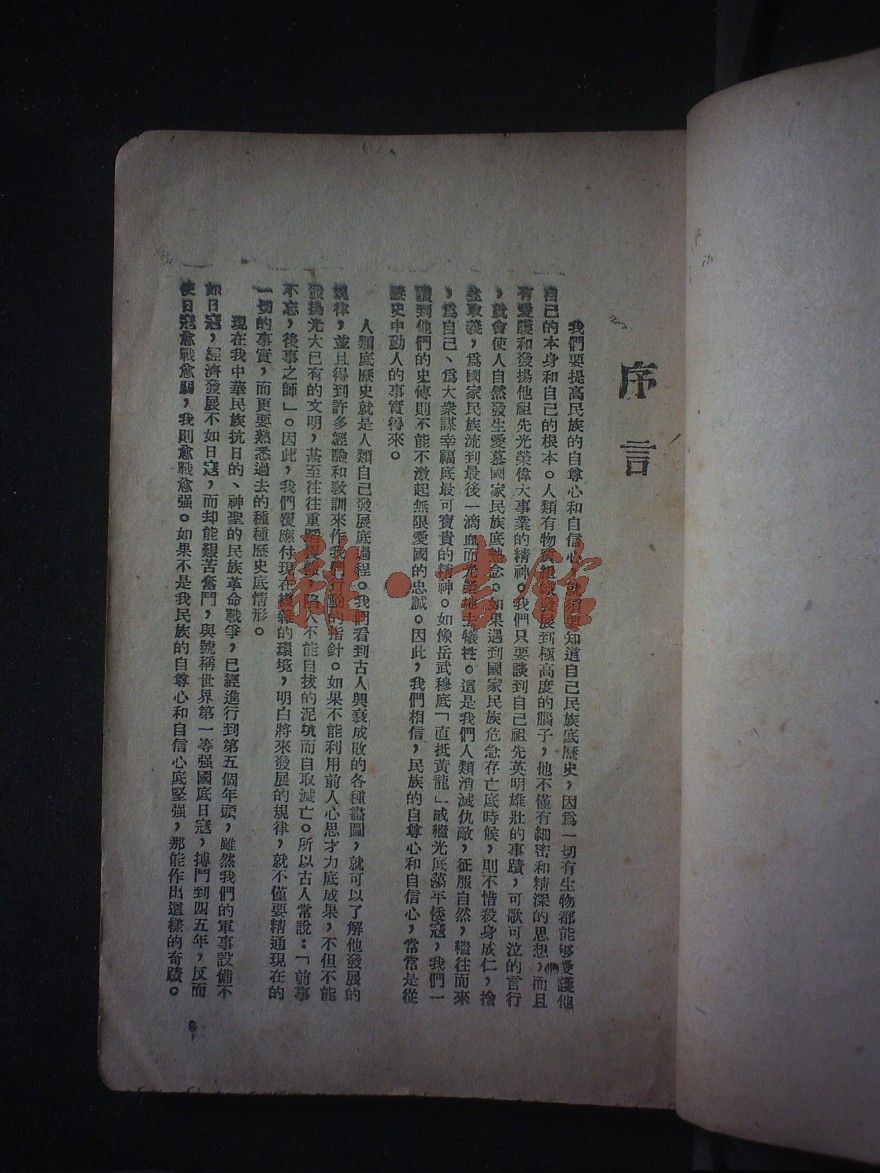 序言
我們要提高民族的自尊心和自信心，須要知道自己民族底歷史，因爲一切有生物都能够愛護他
自己的本身和自己的根本。人類有物質組織發展到極高度的腦子，他不僅有細密和精深的思想，而且
有愛護和發揚他祖先光榮偉大事業的精神。我們只要談到自己祖先英明雄壯的事蹟，可歌可泣的言行
，就會使人自然發生愛慕國家民族底熱念。如果遇到國家民族危急存亡底時候，則不惜殺身成仁，捨
生取義，爲國家民族流到最後一滴血而光榮地去犧牲。這是我們人類消滅仇敵，征服自然，繼往而來
，爲自己、爲大衆謀幸福底最可寶貴的精神。如像岳武穆底「直抵黃龍」戚繼光底蕩平倭寇，我們一
讀到他們的史傳則不能不激起無限愛國的忠誠。因此，我們相信，民族的自尊心和自信心，常常是從
歷史中動人的事實得來。
人類底歷史就是人類自己發展底過程。我們看到古人興衰成敗的各種畫圖，就可以了解他發展的
規律，並且得到許多經驗和敎訓來作我們行動的指針。如果不能利用前人心思才力底成果，不但不能
發揚光大已有的文明，甚至往往重蹈覆轍，陷入不能自拔的泥坑而自取滅亡。所以古人常說：「前事
不忘，後事之師」。因此，我們要應付現在複雜的環境，明白將來發展的規律，就不僅要精通現在的
一切的事實，而更要熟悉過去的種種歷史底情形。
現在我中華民族抗日的、神聖的民族革命戰爭，已經進行到第五個年頭，雖然我們的軍事設備不
如日寇，經濟發展不如日寇，而却能艱苦奮鬥，與號稱世界第一等强國底日寇，搏鬥到四五年，反而
使日寇愈戰愈弱，我則愈戰愈强。如果不是我民族的自尊心和自信心底堅强，那能作出這樣的奇蹟。
雜·書館